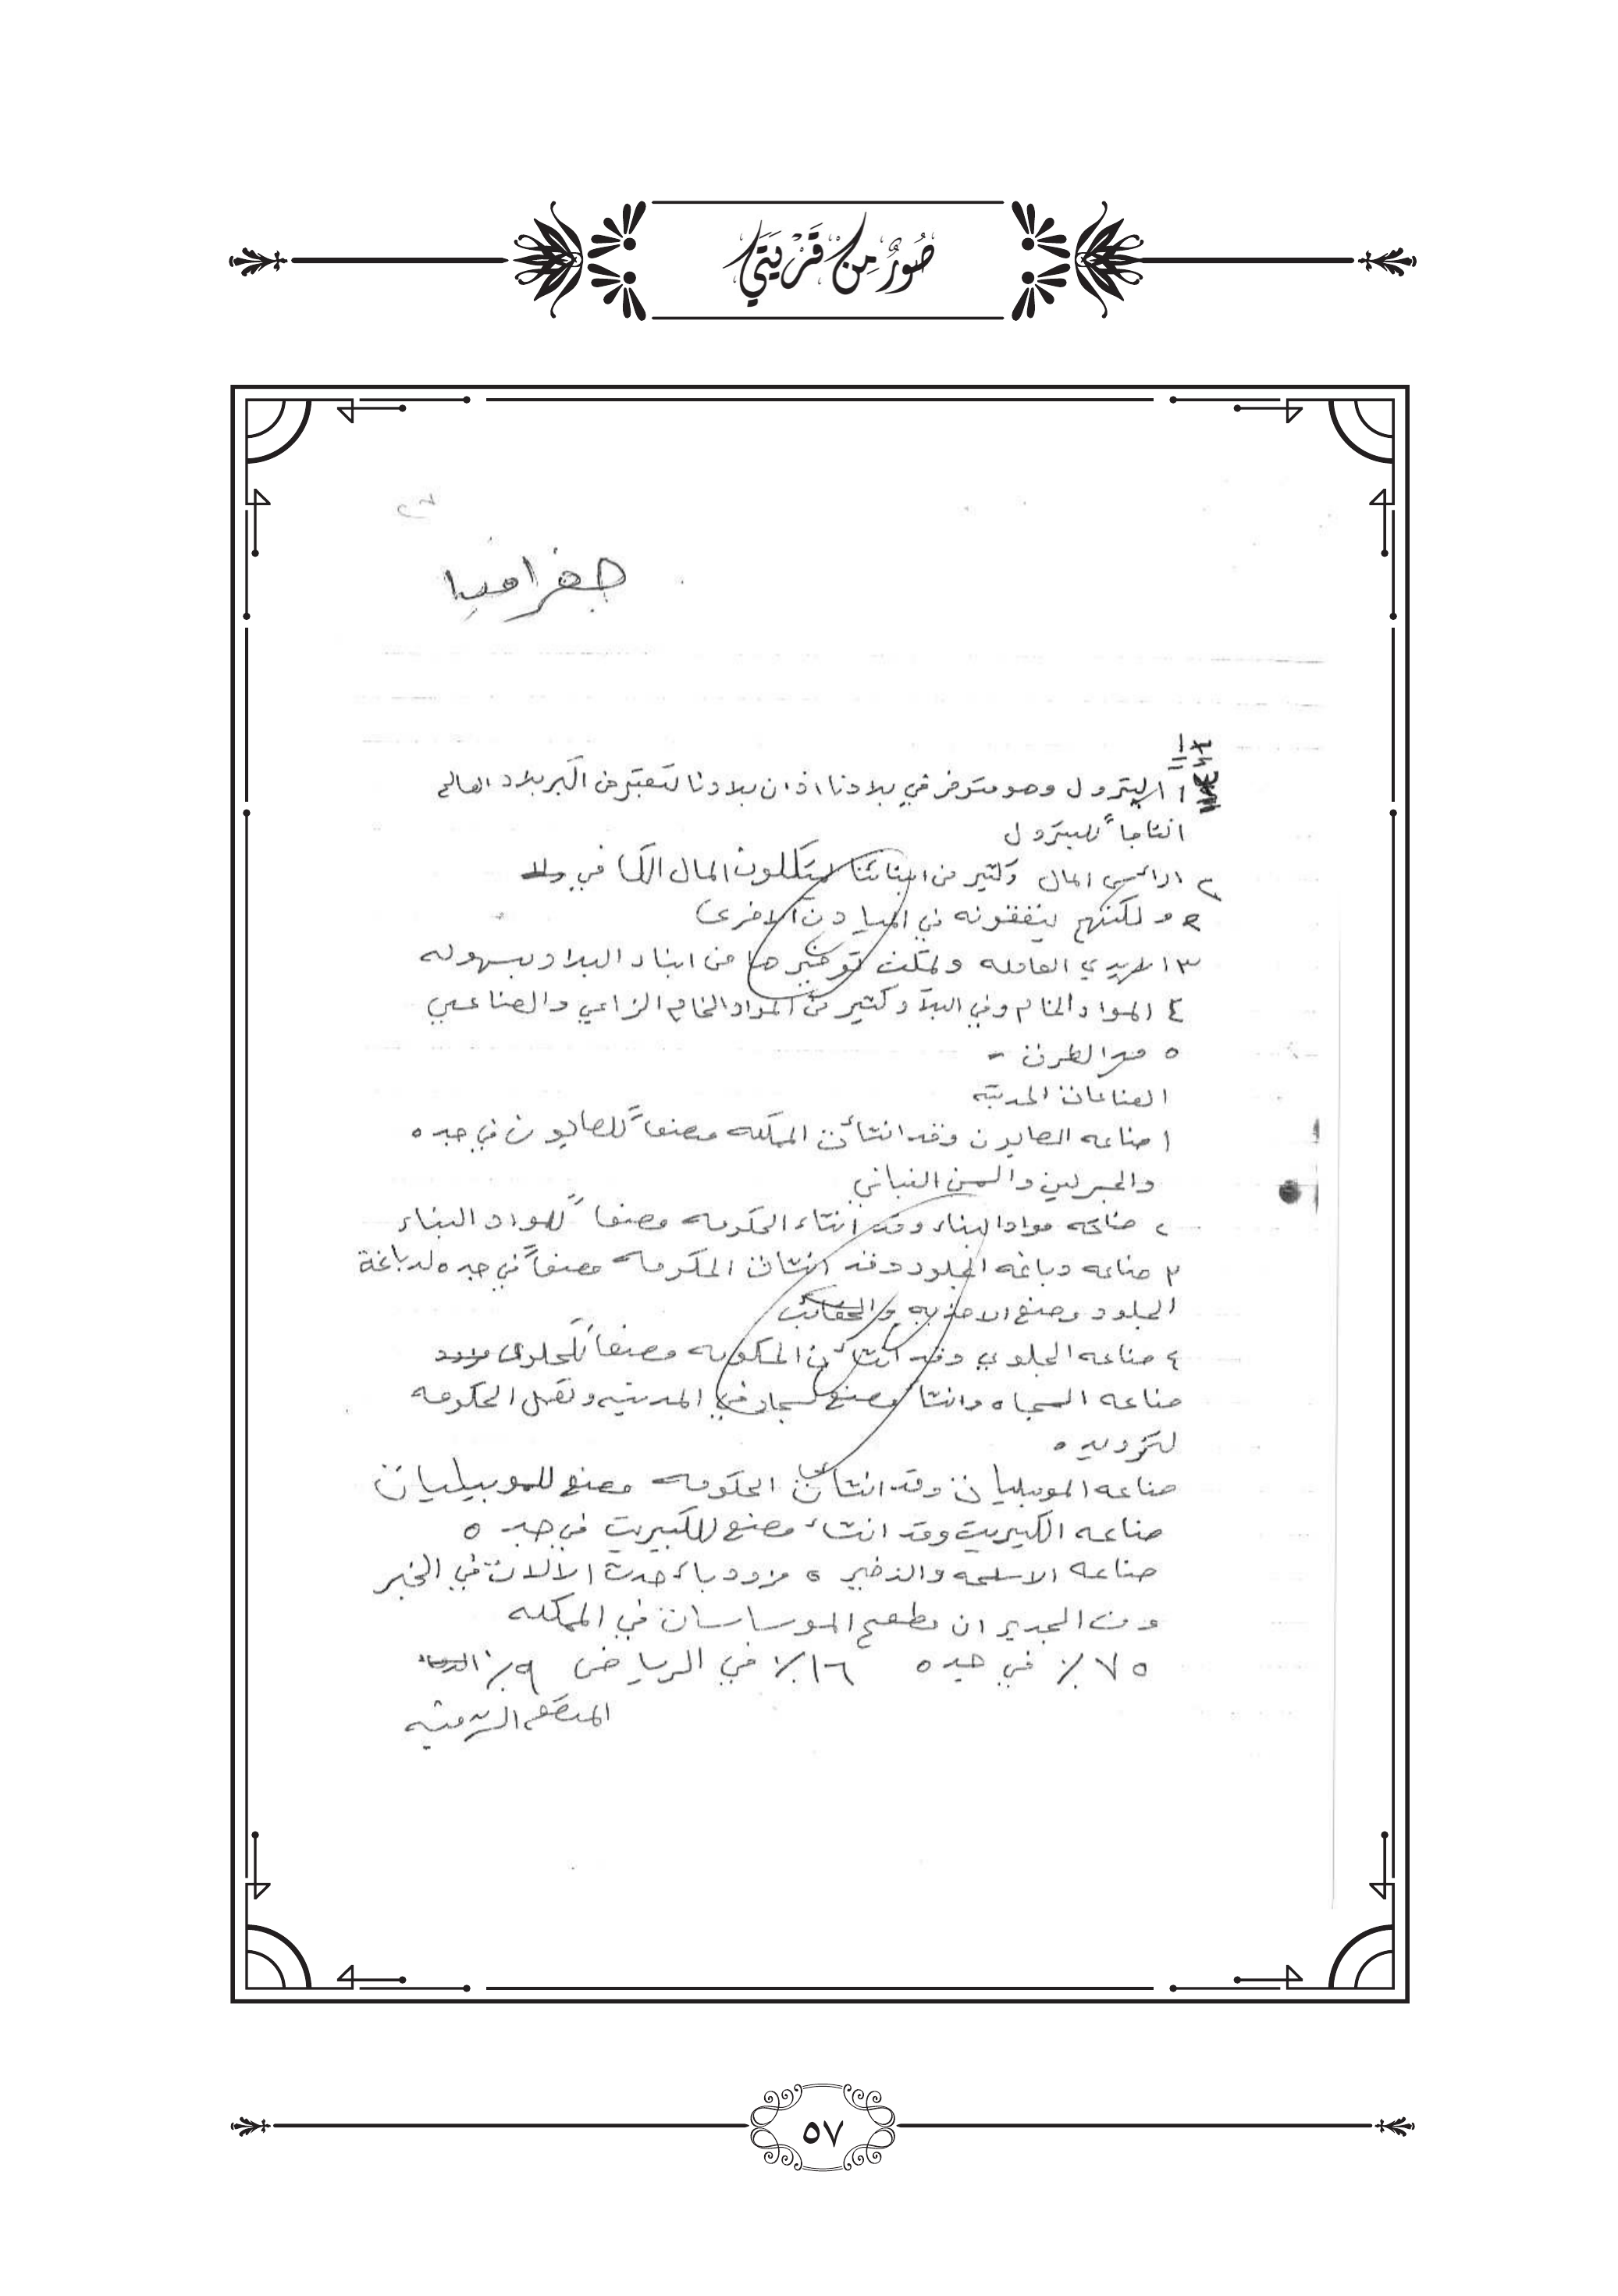 صُوَرٌ مِن قَرْيَتِي
جغرافيا
١ البترول وهو متوفر في بلادنا اذ ان بلادنا لتعتبر من اكبر بلاد العالم
انتاجاً للبترول
٢ الرائسى المال وكثير من ابنائنا يمتكلون المال الكا في
ولكنهم ينفقونه في الميادين الاخرى
٣ الايدي العامله ويمكن توفيرها من ابناء البلاد بسهوله
٤ المواد الخام وفي البلاد كثير من المواد الخام الزاعي والصناعي
٥ مد الطرق -
الصناعات الحديثه
١ صناعه الصابون وقد انشائت المملكه مصنعاً للصابون في جده
والجسرلين والسمن النباتي
٢ صناعه مواد البناء وقد أنشاء الحكومه مصنعاً لمواد البناء
٣ صناعه دباغه الجلود وقد انشات الحكومه مصنعاً في جده لدباغة
الجلود وصنع الاحذيه والحقائب
٤ صناعه الحلوي وقد انشائت الحكومه مصنعاً للحلوى
صناعه السجاد وانشأ مصنع لسجاد في المدينه وتعمل الحكومه
لتزويده
صناعه الموبليات وقد انشات الحكومه مصنع للموبيليات
صناعه الكبريت وقد انشاء مصنع للكبريت في جده
صناعه الاسلحه والذخيره مزود باءحدث الالات في الخبر
ومن الجدير ان مطعم الموساسات في المملكه
٧٥٪ في جده ١٦٪ في الرياض ٩٪
المنطقه الشرقيه
٥٧